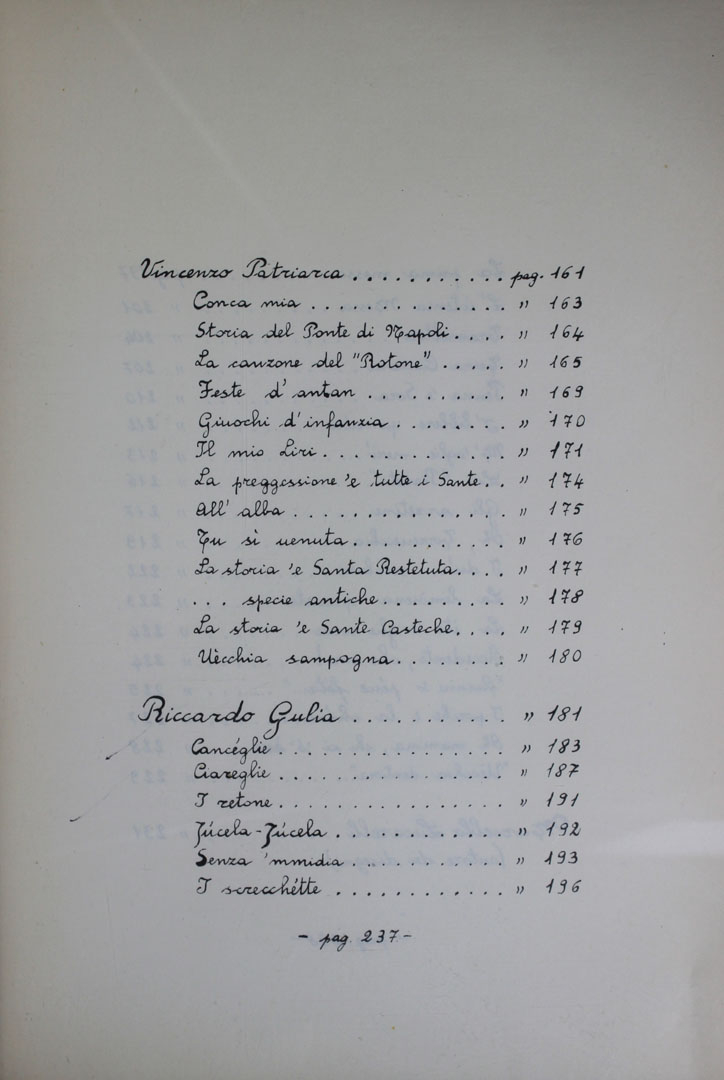 Vincenzo Patriarca . . . . . . . . . . . pag. 161
Conca mia . . . . . . . . . . . . . " 163
Storia del Ponte di Napoli . . . . " 164
La canzone del "Rotone" . . . . . " 165
Feste d'antan . . . . . . . . . " 169
Giuochi d'infanzia . . . . . . . " 170
Il mio Liri . . . . . . . . . . . . " 171
La preggessione 'e tutte i Sante . . " 174
All'alba . . . . . . . . . . . . . . " 175
Tu sì venuta . . . . . . . . . . " 176
La storia 'e Santa Restetuta . . . . " 177
. . . specie antiche . . . . . . . . . " 178
La storia 'e Sante Casteche . . . . " 179
Vècchia sampogna . . . . . . . . " 180
Riccardo Gulia . . . . . . . . . . . " 181
Cancéglie . . . . . . . . . . . . . . " 183
Ciareglie . . . . . . . . . . . . . . " 187
I retone . . . . . . . . . . . . . . " 191
Júcela-Júcela . . . . . . . . . . . " 192
Senza 'mmidia . . . . . . . . . . " 193
I screcchétte . . . . . . . . . . . " 196
- pag. 237 -